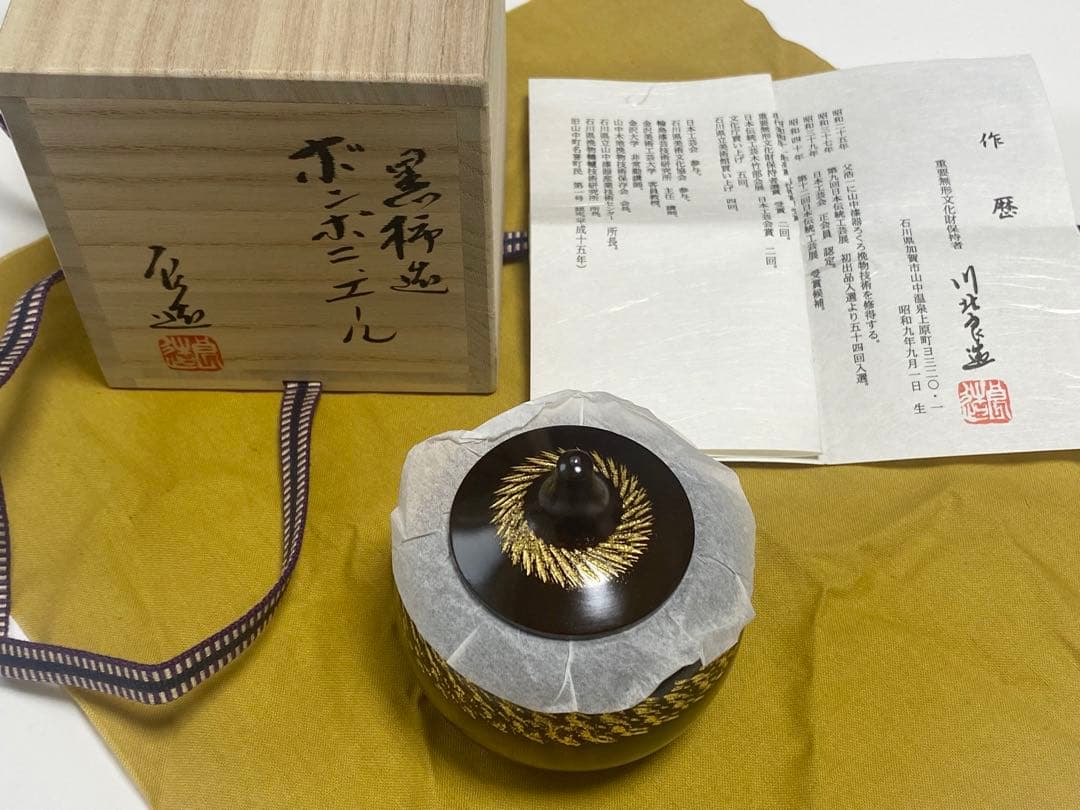 黒柿造
ボンボニエール
良造
作歴
重要無形文化財保持者
川北良造
石川県加賀市山中温泉上原町ヨ三二〇・一
昭和九年九月一日 生
昭和二十五年 父浩一に山中漆器ろくろ挽物技術を修得する。
昭和三十七年 第九回日本伝統工芸展 初出品入選より五十四回入選。
昭和三十九年 日本工芸会 正会員 認定。
昭和四十年 第十二回日本伝統工芸展 受賞候補。
重要無形文化財保持者選賞 受賞 二回。
日本伝統工芸木竹部会展 日本工芸会賞 二回。
文化庁買い上げ 五回。
石川県立美術館買い上げ 四回。
日本工芸会 参与。
石川県美術文化協会 参与。
輪島漆芸技術研究所 主任 講師。
金沢美術工芸大学 客員教授。
金沢大学 非常勤講師。
山中木地挽物技術保存会 会長。
石川県立山中漆器産業技術センター 所長。
石川県挽物轆轤技術研究所 所長。
旧山中町名誉町民 第一号 認定(平成十五年)